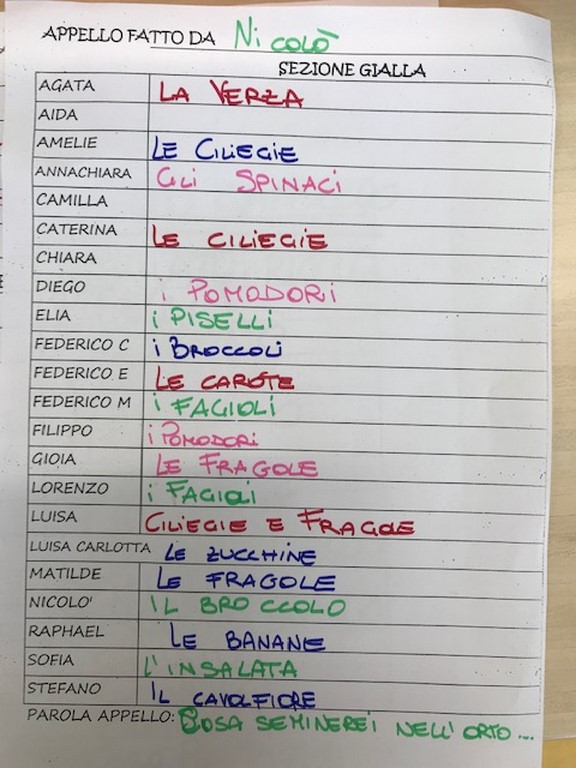 APPELLO FATTO DA Nicolò
SEZIONE GIALLA
AGATA LA VERZA
AIDA
AMELIE LE CILIEGIE
ANNACHIARA GLI SPINACI
CAMILLA
CATERINA LE CILIEGIE
CHIARA
DIEGO i POMODORi
ELIA i PISELLI
FEDERICO C i BROCCOLI
FEDERICO E LE CAROTE
FEDERICO M i FAGIOLI
FILIPPO i POMODORI
GIOIA LE FRAGOLE
LORENZO i FAGIOLI
LUISA CILIEGIE E FRAGOLE
LUISA CARLOTTA LE ZUCCHINE
MATILDE LE FRAGOLE
NICOLO' IL BROCCOLO
RAPHAEL LE BANANE
SOFIA L'INSALATA
STEFANO IL CAVOLFIORE
PAROLA APPELLO: COSA SEMINEREI NELL'ORTO...